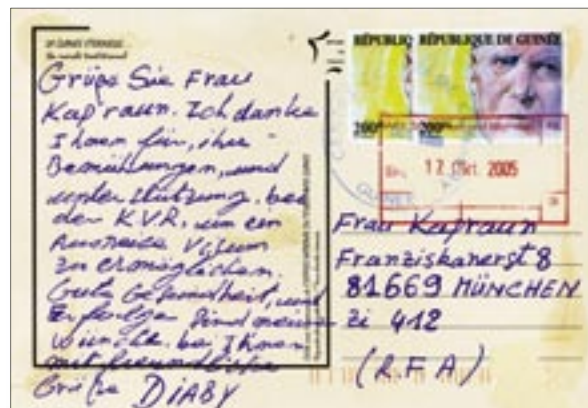 LA GUINEE ETERNELLE
Grüße Sie Frau
Kapraun. Ich danke
Ihnen für, ihre
Bemühungen, und
unterstützung, bei
der KVR, um ein
Ausreise Visum
zu ermöglichen.
Gute Gesundheit, und
Erfolge sind meine
Wünsche bei Ihnen
mit freundliche
Grüße DIABY
RÉPUBLIQ
RÉPUBLIQUE DE GUINÉE
200
200
17. Okt. 2005
Frau Kapraun
Franziskanerst 8
81669 MÜNCHEN
Zi 412
(R.F.A)